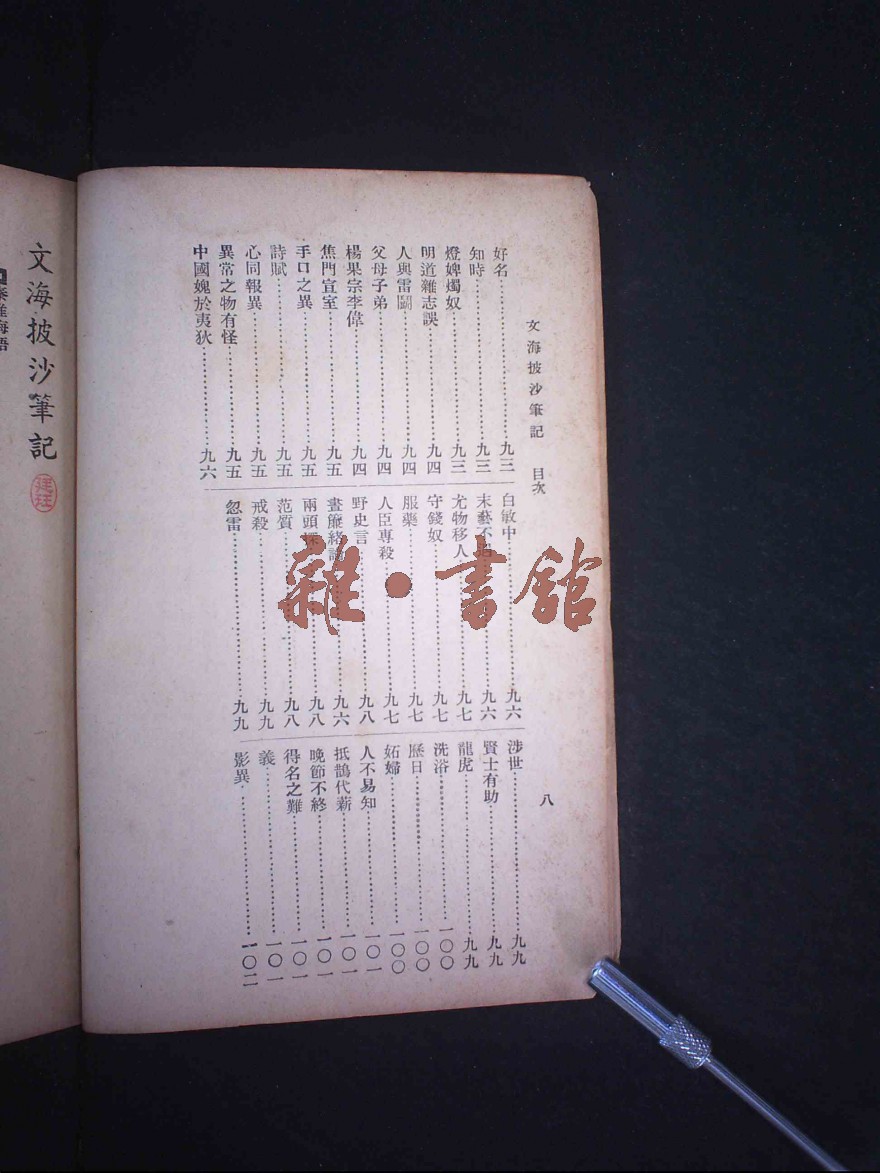 文海披沙筆記 目次 八
好名⋯⋯九三
知時⋯⋯九三
燈婢燭奴⋯⋯九三
明道雜志誤⋯⋯九四
人與雷鬭⋯⋯九四
父母子弟⋯⋯九四
楊果宗李偉⋯⋯九四
焦門宣室⋯⋯九五
手口之異⋯⋯九五
詩賦⋯⋯九五
心同報異⋯⋯九五
異常之物有怪⋯⋯九五
中國媿於夷狄⋯⋯九六
白敏中⋯⋯九六
末藝不⋯⋯九六
尤物移人⋯⋯九七
守錢奴⋯⋯九七
服藥⋯⋯九七
人臣專殺⋯⋯九七
野史言⋯⋯九八
晝簾緒論⋯⋯九六
兩頭⋯⋯九八
范質⋯⋯九八
戒殺⋯⋯九九
忽雷⋯⋯九九
涉世⋯⋯九九
賢士有助⋯⋯九九
龍虎⋯⋯九九
洗浴⋯⋯一〇〇
歷日⋯⋯一〇〇
妬婦⋯⋯一〇〇
人不易知⋯⋯一〇一
抵鵲代薪⋯⋯一〇一
晚節不終⋯⋯一〇一
得名之難⋯⋯一〇一
義⋯⋯一〇一
影異⋯⋯一〇二
文海披沙筆記
雜·書館